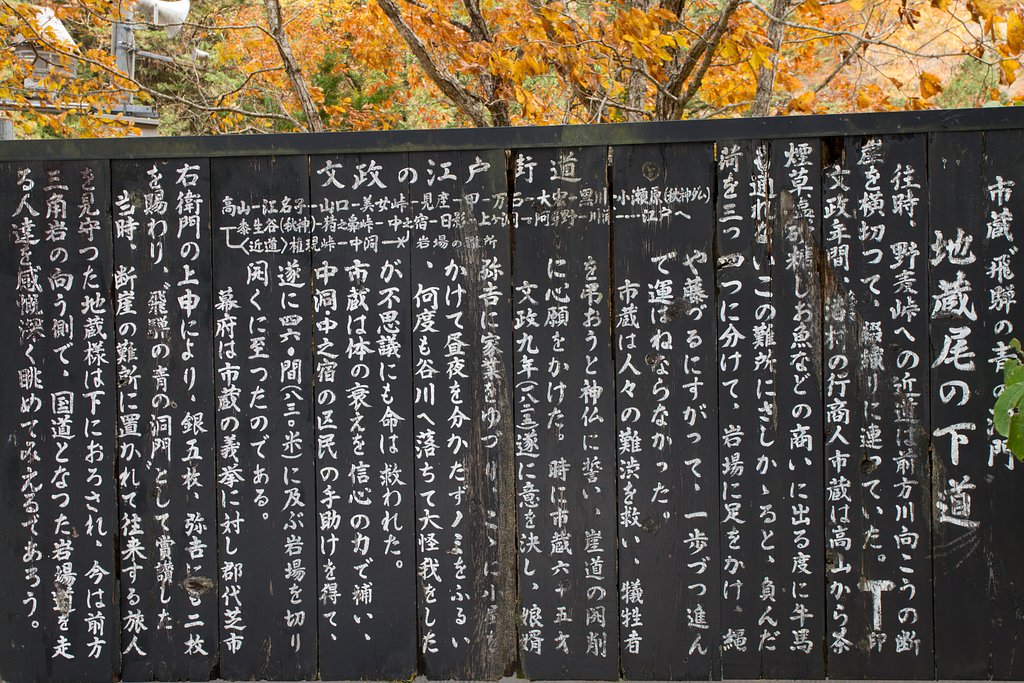 市蔵、飛騨の青の洞門
地蔵尾の下道
往時、野麦峠への近道は前方川向こうの断
崖を横切って、綴織りに連っていた。
文政年間、の行商人市蔵は高山から茶
煙草塩砂糖しお魚などの商いに出る度に牛馬
も通れないこの難所にさしかゝると、負んだ
荷を三つ四つに分けて、岩場に足をかけ、縄
や藤づるにすがって、一歩づつ進ん
で運ばねばならなかった。
市蔵は人々の難渋を救い、犠牲者
を弔おうと神仏に誓い、崖道の開削
に心願をかけた。時に市蔵六十五才
文政九年(一八二六)遂に意を決し、娘婿
弥吉に家業をゆづり、こゝに小屋
かけて昼夜を分かたずノミをふるい
、何度も谷川へ落ちて大怪我をした
が不思議にも命は救われた。
市蔵は体の衰えを信心の力で補い、
中洞・中之宿の区民の手助けを得て、
遂に四六〇間(八三〇米)に及ぶ岩場を切り
開くに至ったのである。
幕府は市蔵の義挙に対し郡代芝市
右衛門の上申により、銀五枚、弥吉にも二枚
を賜わり、〝飛騨の青の洞門〟として賞讃した
当時、断崖の難所に置かれて往来する旅人
を見守った地蔵様は下におろされ、今は前方
三角岩の向う側で、国道となった岩場道を走
る人達を感慨深く眺めてみえるであろう。
文政の江戸街道
高山―江名子―山口―美女峠―見座